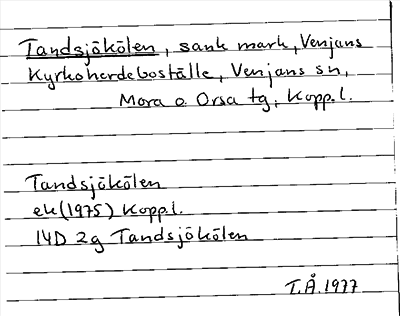 Tandsjökölen, sank mark, Venjans
Kyrkoherdeboställe, Venjans sn,
Mora o. Orsa tg, Kopp.l.
Tandsjökölen
ek (1975) Kopp.l.
14D 2g Tandsjökölen
T.Å. 1977